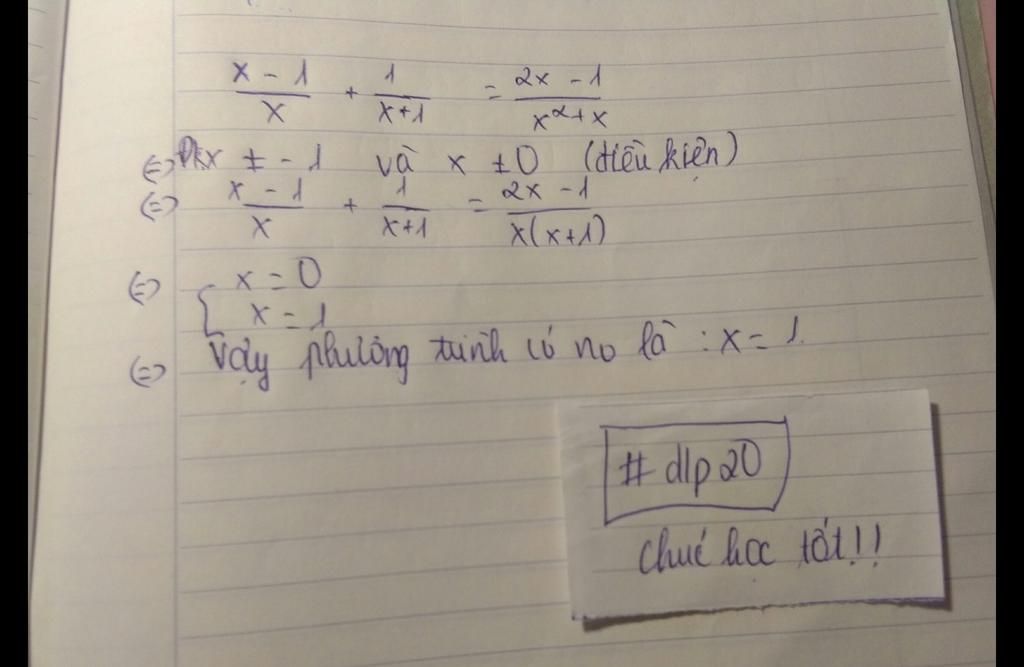 x - 1 / x + 1 / x+1 = 2x - 1 / x² + x
(=) Đk x ≠ - 1 và x ≠ 0 (điều kiện)
(=) x - 1 / x + 1 / x+1 = 2x - 1 / x(x+1)
(=) { x = 0
x = 1
(=) Vậy phương trình có no là : x = 1.
# dlp20
chúc học tốt!!